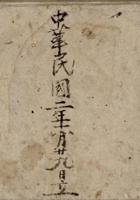 中華民國二年月廿九日立